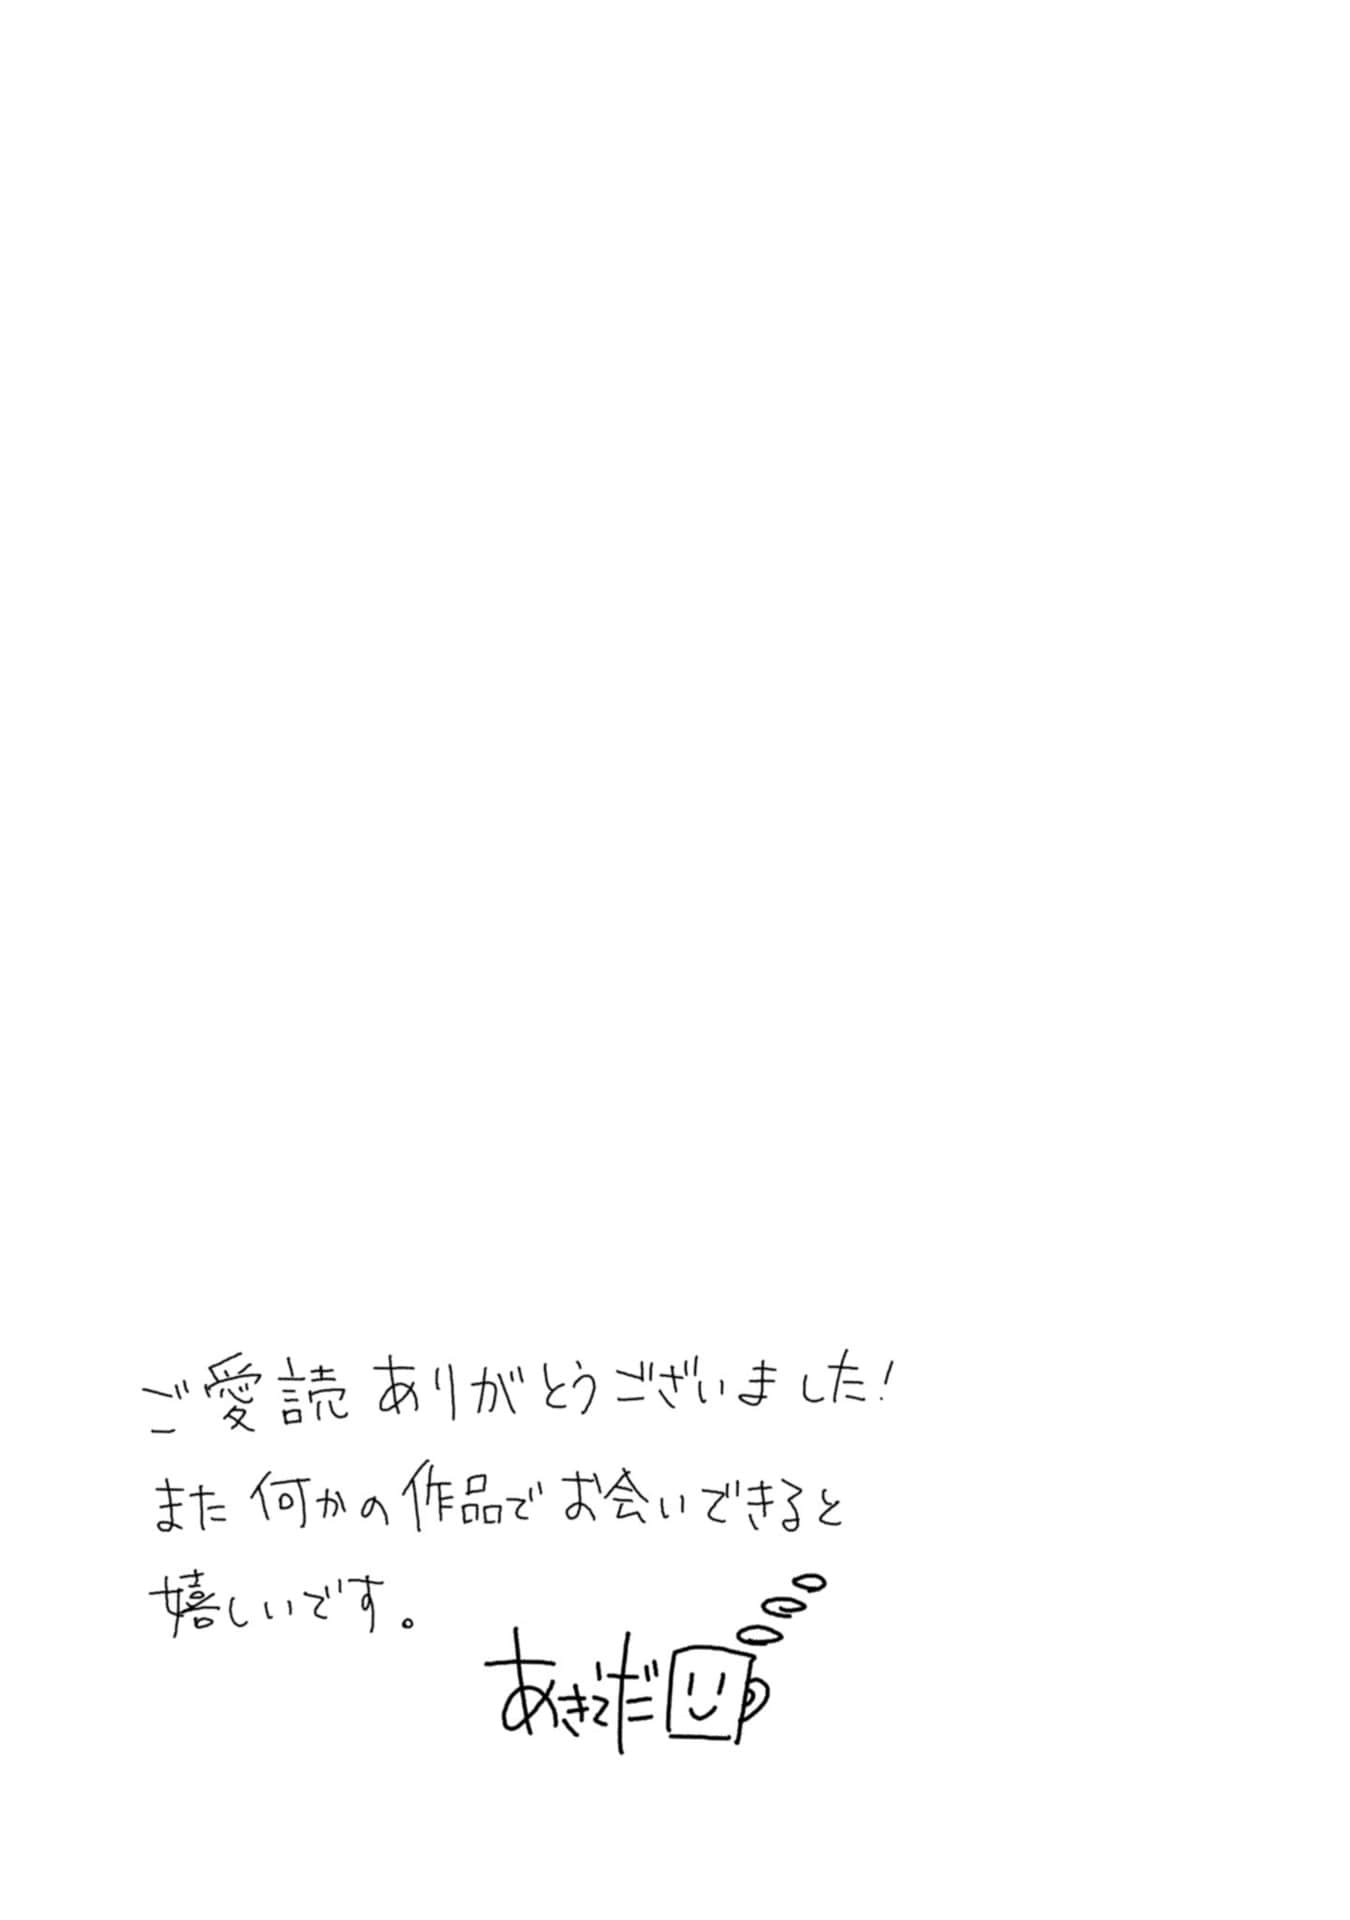 ご愛読ありがとうございました!
また何かの作品でお会いできると
嬉しいです。